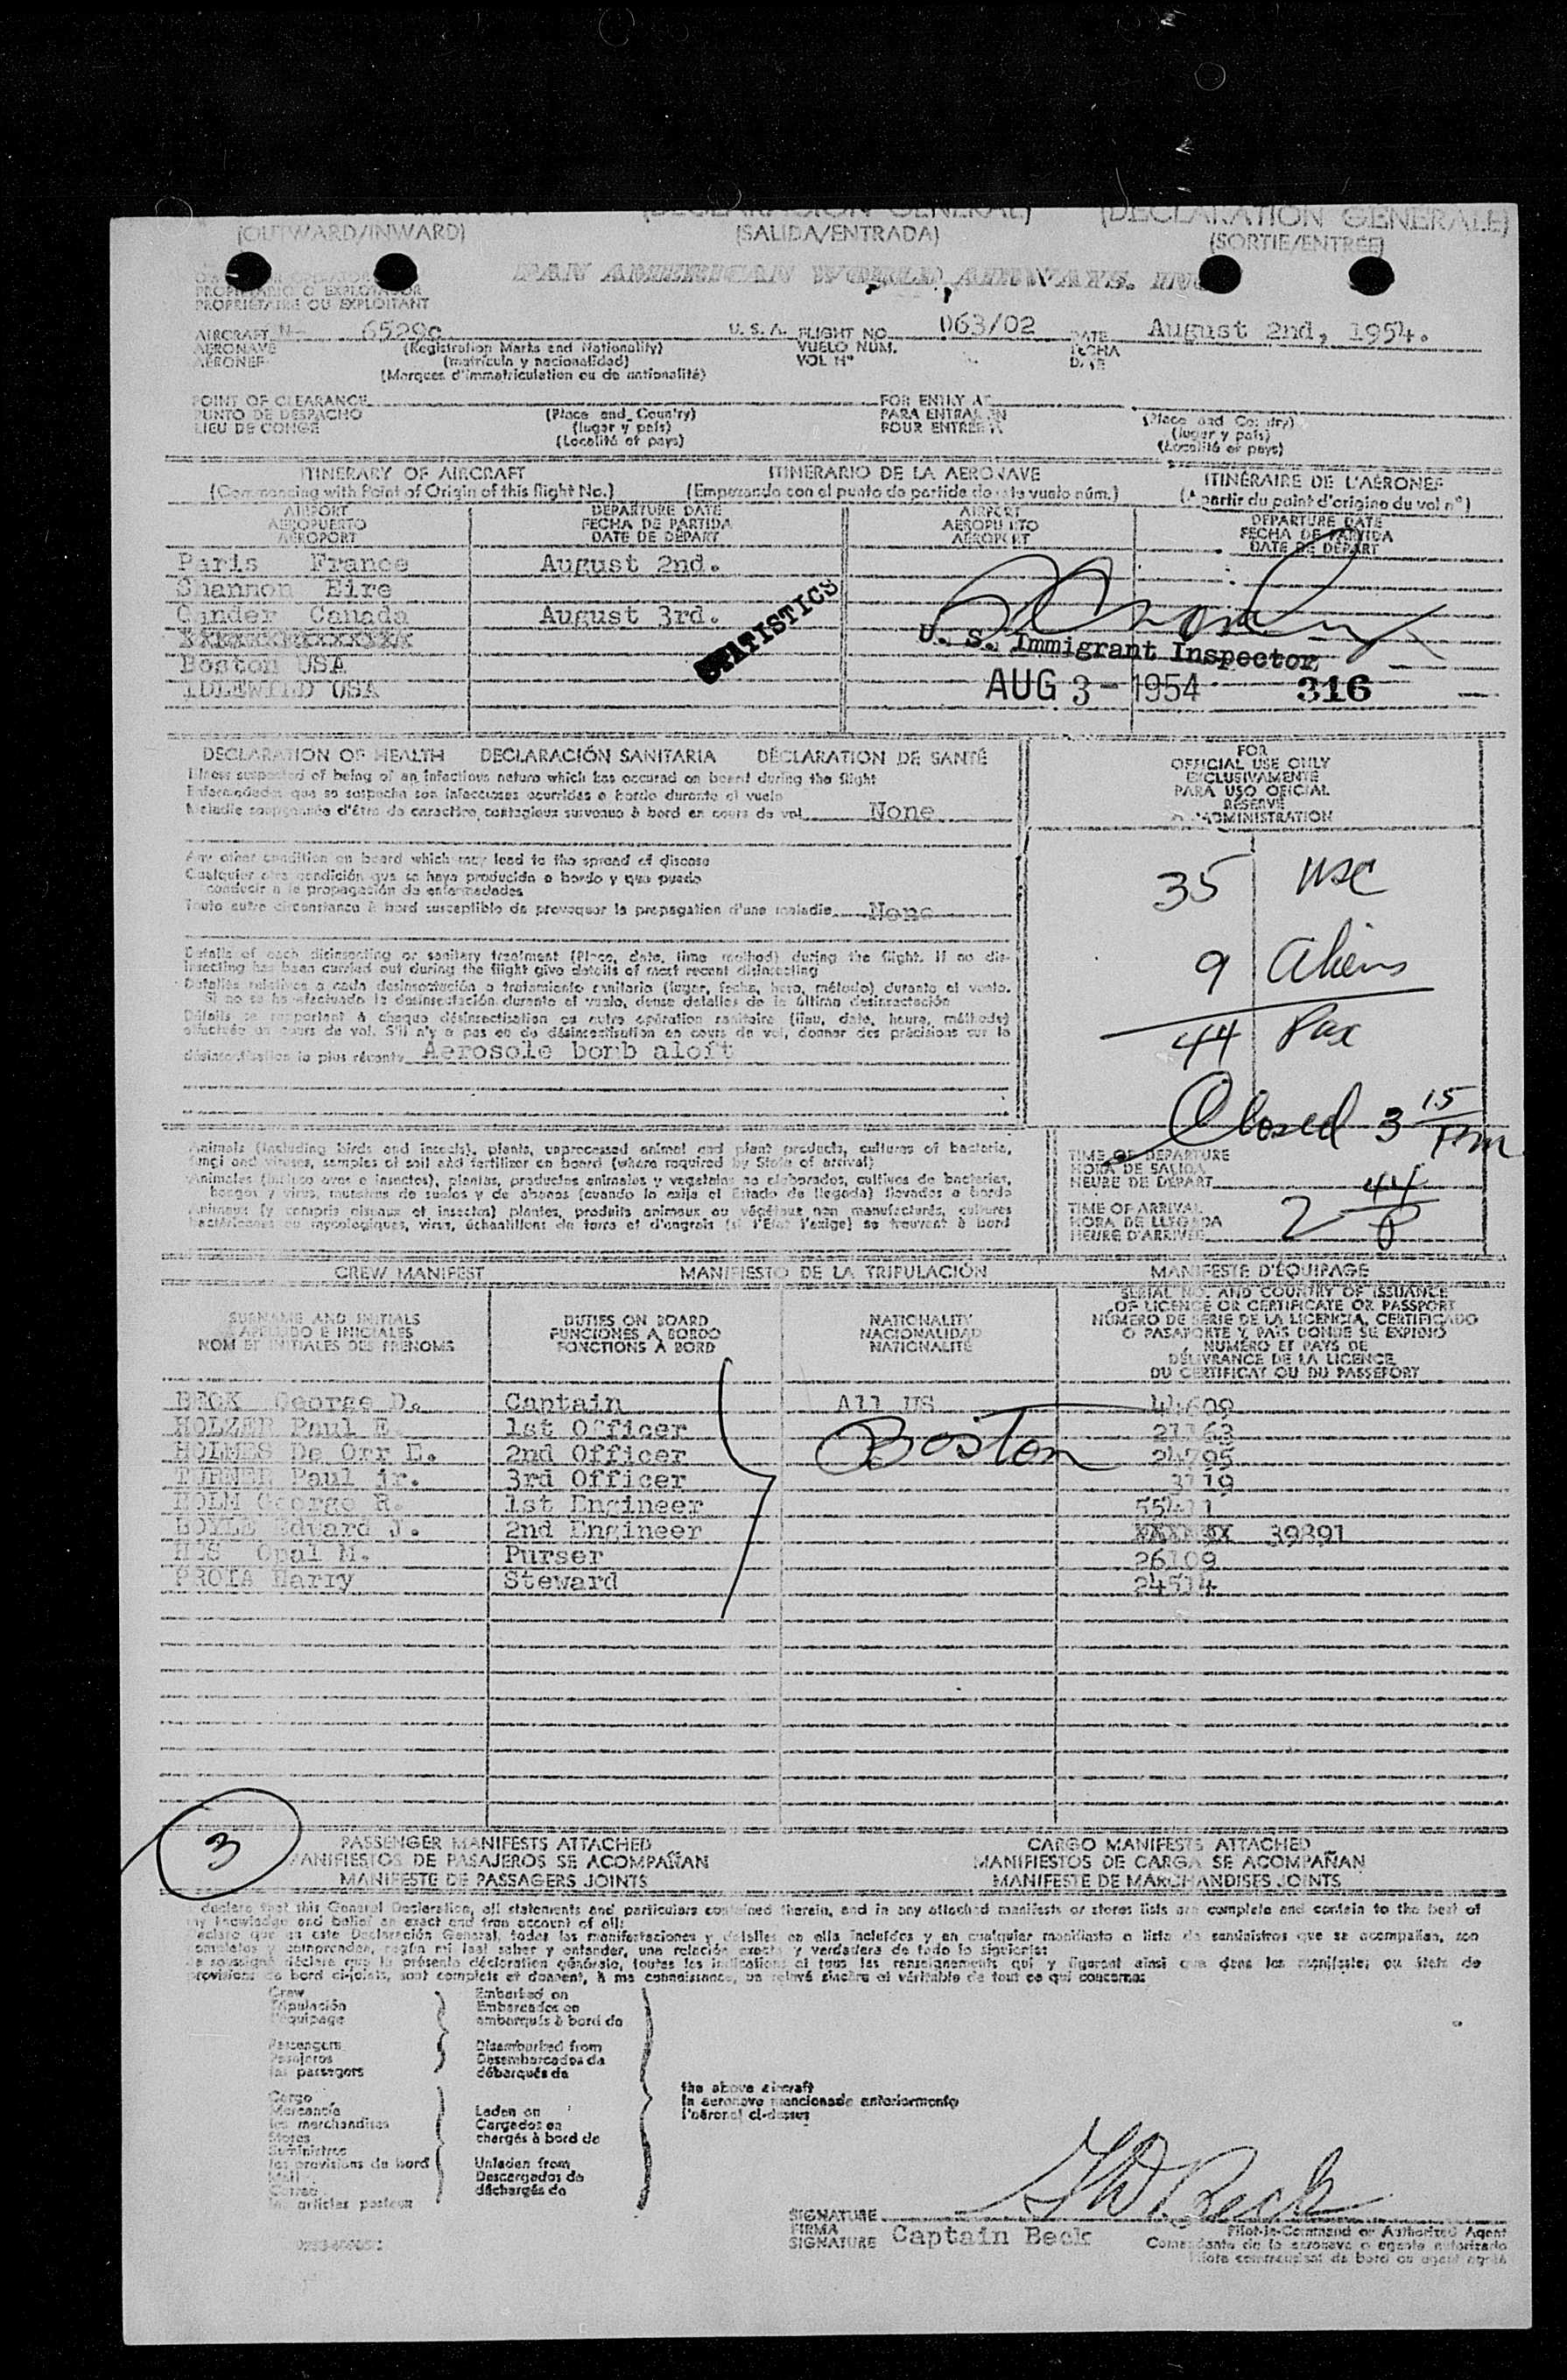 (DECLARACION GENERAL) (DECLARATION GENERALE)
(OUTWARD/INWARD) (SALIDA/ENTRADA) (SORTIE/ENTRÉE)
PAN AMERICAN WORLD AIRWAYS. INC
PROPIETARIO O EXPLOTADOR
PROPRIÉTAIRE OU EXPLOITANT
AIRCRAFT N- 6529c U. S. A. FLIGHT NO. 063/02 DATE August 2nd, 1954.
AERONAVE (Registration Marks and Nationality) VUELO NUM. FECHA
AÉRONEF (matrícula y nacionalidad) VOL Nº DATE
(Marques d'immatriculation ou de nationalité)
POINT OF CLEARANCE FOR ENTRY AT
PUNTO DE DESPACHO (Place and Country) PARA ENTRAR EN (Place and Country)
LIEU DE CONGÉ (lugar y país) POUR ENTRÉE A (lugar y país)
(Localité et pays) (Localité et pays)
ITINERARY OF AIRCRAFT ITINERARIO DE LA AERONAVE ITINÉRAIRE DE L'AÉRONEF
(Commencing with Point of Origin of this flight No.) (Empezando con el punto de partida de este vuelo núm.) (A partir du point d'origine du vol nº)
AIRPORT DEPARTURE DATE AIRPORT DEPARTURE DATE
AEROPUERTO FECHA DE PARTIDA AEROPUERTO FECHA DE PARTIDA
AÉROPORT DATE DE DÉPART AÉROPORT DATE DE DÉPART
Paris France August 2nd.
Shannon Eire
Gander Canada August 3rd.
STATISTICS
Boston USA
U. S. Immigrant Inspector
IDLEWILD USA
AUG 3 - 1954 316
DECLARATION OF HEALTH DECLARACIÓN SANITARIA DÉCLARATION DE SANTÉ
FOR
OFFICIAL USE ONLY
EXCLUSIVAMENTE
PARA USO OFICIAL
RÉSERVÉ
ADMINISTRATION
Illness suspected of being of an infectious nature which has occured on board during the flight
Enfermedades que se sospecha son infecciosas ocurridas a bordo durante el vuelo
Maladie soupçonnée d'être de caractère contagieux survenue à bord en cours de vol None
Any other condition on board which may lead to the spread of disease
Cualquier otra condición que se haya producido a bordo y que pueda
conducir a la propagación de enfermedades
Toute autre circonstance à bord susceptible de provoquer la propagation d'une maladie None
35 USC
9 Aliens
44 Pax
Details of each disinsecting or sanitary treatment (Place, date, time method) during the flight. If no dis-
insecting has been carried out during the flight give details of most recent disinsecting
Detalles relativos a cada desinsectación o tratamiento sanitario (lugar, fecha, hora, método) durante el vuelo.
Si no se ha efectuado la desinsectación durante el vuelo, dense detalles de la última desinsectación
Détails se rapportant à chaque désinsectisation ou autre opération sanitaire (lieu, date, heure, méthode)
effectuée en cours de vol. S'il n'y a pas eu de désinsectisation en cours de vol, donner des précisions sur la
désinsectisation la plus récente Aerosole bomb aloft
Closed 3 15 Pm
Animals (including birds and insects), plants, unprocessed animal and plant products, cultures of bacteria,
fungi and viruses, samples of soil and fertilizer on board (where required by State of arrival)
Animales (incluso aves e insectos), plantas, productos animales y vegetales no elaborados, cultivos de bacterias,
hongos y virus, muestras de suelos y de abonos (cuando lo exija el Estado de llegada) llevados a bordo
Animaux (y compris oiseaux et insectes) plantes, produits animaux ou végétaux non manufacturés, cultures
bactériennes ou mycologiques, virus, échantillons de terre et d'engrais (si l'État l'exige) se trouvant à bord
TIME OF DEPARTURE
HORA DE SALIDA
HEURE DE DÉPART
TIME OF ARRIVAL
HORA DE LLEGADA 2 44 P
HEURE D'ARRIVÉE
CREW MANIFEST MANIFIESTO DE LA TRIPULACIÓN MANIFESTE D'ÉQUIPAGE
SURNAME AND INITIALS DUTIES ON BOARD NATIONALITY
APELLIDO E INICIALES FUNCIONES A BORDO NACIONALIDAD
NOM ET INITIALES DES PRÉNOMS FONCTIONS À BORD NATIONALITÉ
SERIAL NO. AND COUNTRY OF ISSUANCE
OF LICENCE OR CERTIFICATE OR PASSPORT
NÚMERO DE SERIE DE LA LICENCIA, CERTIFICADO
O PASAPORTE Y PAÍS DONDE SE EXPIDIÓ
NUMÉRO ET PAYS DE
DÉLIVRANCE DE LA LICENCE
DU CERTIFICAT OU DU PASSEPORT
BECK George D. Captain All US 44609
HOLZER Paul E. 1st Officer Boston 21163
HOLMES De Orr E. 2nd Officer 24795
TURNER Paul jr. 3rd Officer 3119
HOLM George R. 1st Engineer 55411
BOYLE Edward J. 2nd Engineer 39391
Opal M. Purser 26109
PROTA Harry Steward 24514
3
PASSENGER MANIFESTS ATTACHED CARGO MANIFESTS ATTACHED
MANIFIESTOS DE PASAJEROS SE ACOMPAÑAN MANIFIESTOS DE CARGA SE ACOMPAÑAN
MANIFESTE DE PASSAGERS JOINTS MANIFESTE DE MARCHANDISES JOINTS
declare that this General Declaration, all statements and particulars contained therein, and in any attached manifests or stores lists are complete and contain to the best of
my knowledge and belief an exact and true account of all:
declaro que en esta Declaración General, todas las manifestaciones y detalles en ella incluídos y en cualquier manifiesto o lista de suministros que se acompañan, son
completos y comprenden, según mi leal saber y entender, una relación exacta y verdadera de todo lo siguiente:
Je soussigné déclare que la présente déclaration générale, toutes les indications et tous les renseignements qui y figurent ainsi que dans les manifestes ou états de
provisions de bord ci-joints, sont complets et donnent, à ma connaissance, un relevé sincère et véritable de tout ce qui concerne:
Crew Embarked on
Tripulación Embarcados en
l'équipage embarqués à bord de
Passengers Disembarked from
Pasajeros Desembarcados de
les passagers débarqués de
the above aircraft
la aeronave mencionada anteriormente
l'aéronef ci-dessus
Cargo
Mercancía Laden on
les marchandises Cargados en
Stores chargés à bord de
Suministros
les provisions de bord Unladen from
Mail Descargados de
Correo déchargés de
les articles postaux
GD. Beck
SIGNATURE
FIRMA
SIGNATURE Captain Beck
Pilot-in-Command or Authorized Agent
Comandante de la aeronave o agente autorizado
Pilote commandant de bord ou agent agréé